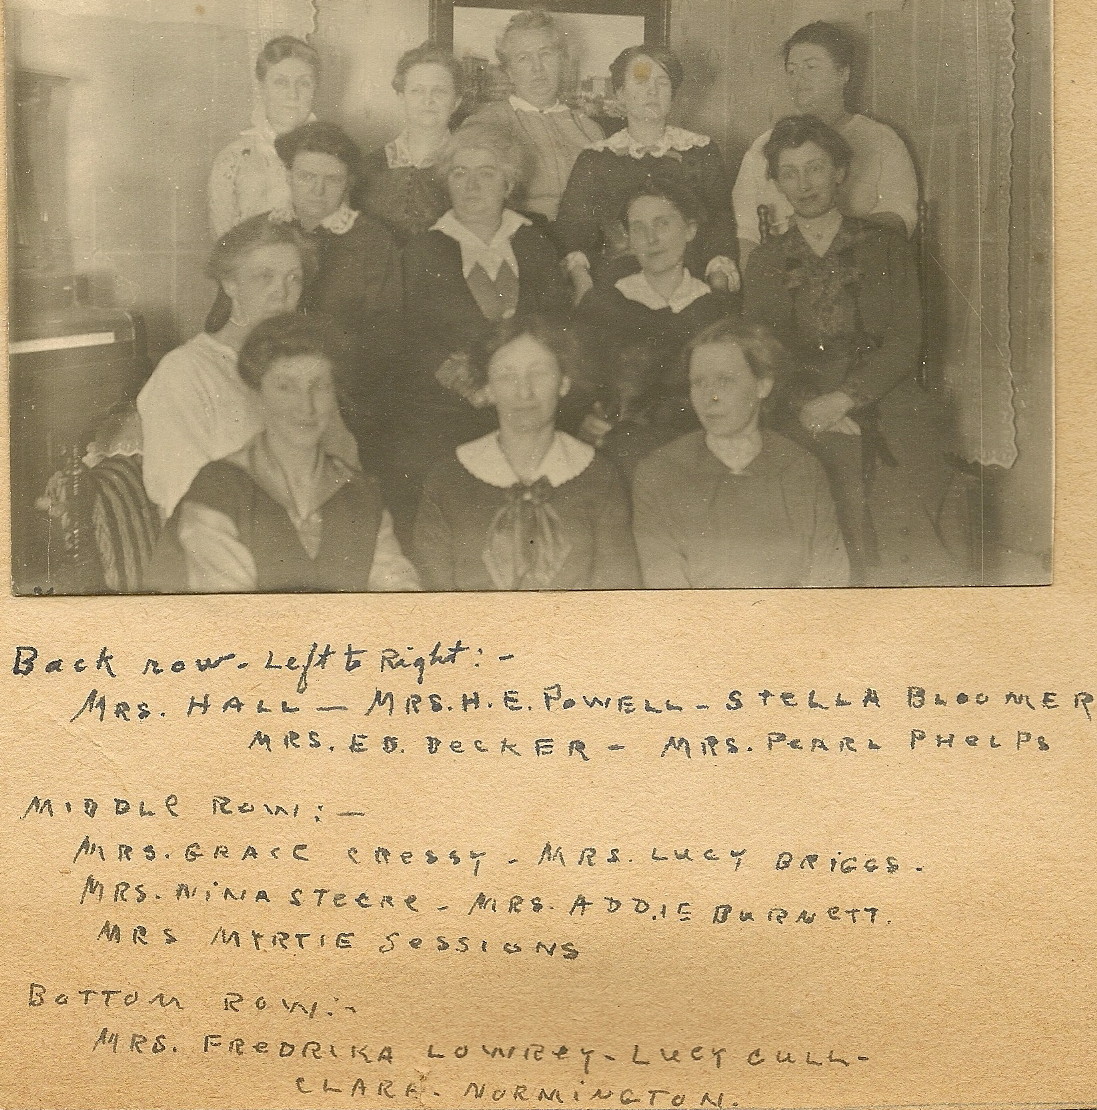 Back row - Left to Right: -
MRS. HALL - MRS. H. E. POWELL - STELLA BLOOMER
MRS. ED. DECKER - MRS. PEARL PHELPS
MIDDLE ROW: -
MRS. GRACE CRESSY - MRS. LUCY BRIGGS.
MRS. NINA STEERE - MRS. ADDIE BURNETT.
MRS MYRTIE SESSIONS
BOTTOM ROW: -
MRS. FREDRIKA LOWREY - LUCY CULL -
CLARA NORMINGTON.